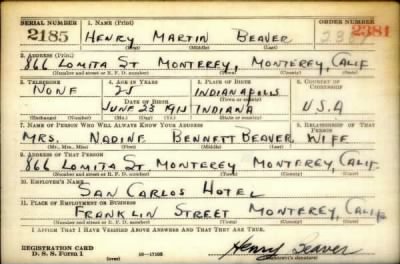 SERIAL NUMBER 1. NAME (Print) ORDER NUMBER
2185 HENRY MARTIN BEAVER 2381
(First) (Middle) (Last)
2. ADDRESS (Print)
866 LOMITA ST MONTEREY, MONTEREY, CALIF
(Number and street or R. F. D. number) (Town) (County) (State)
3. TELEPHONE 4. AGE IN YEARS 5. PLACE OF BIRTH 6. COUNTRY OF CITIZENSHIP
NONE 25 INDIANAPOLIS
DATE OF BIRTH (Town or county)
JUNE 23 INDIANA U.S.A
(Exchange) (Number) (Mo.) (Day) (Yr.) (State or country)
7. NAME OF PERSON WHO WILL ALWAYS KNOW YOUR ADDRESS 8. RELATIONSHIP OF THAT PERSON
MRS. NADINE BENNETT BEAVER, WIFE
(Mr., Mrs., Miss) (First) (Middle) (Last)
9. ADDRESS OF THAT PERSON
866 LOMITA ST MONTEREY MONTEREY, CALIF.
(Number and street or R. F. D. number) (Town) (County) (State)
10. EMPLOYER'S NAME
SAN CARLOS HOTEL
11. PLACE OF EMPLOYMENT OR BUSINESS
FRANKLIN STREET MONTEREY, CALIF
(Number and street or R. F. D. number) (Town) (County) (State)
I AFFIRM THAT I HAVE VERIFIED ABOVE ANSWERS AND THAT THEY ARE TRUE.
REGISTRATION CARD
D. S. S. Form 1 16—17105 Henry Beaver
(Registrant's signature)